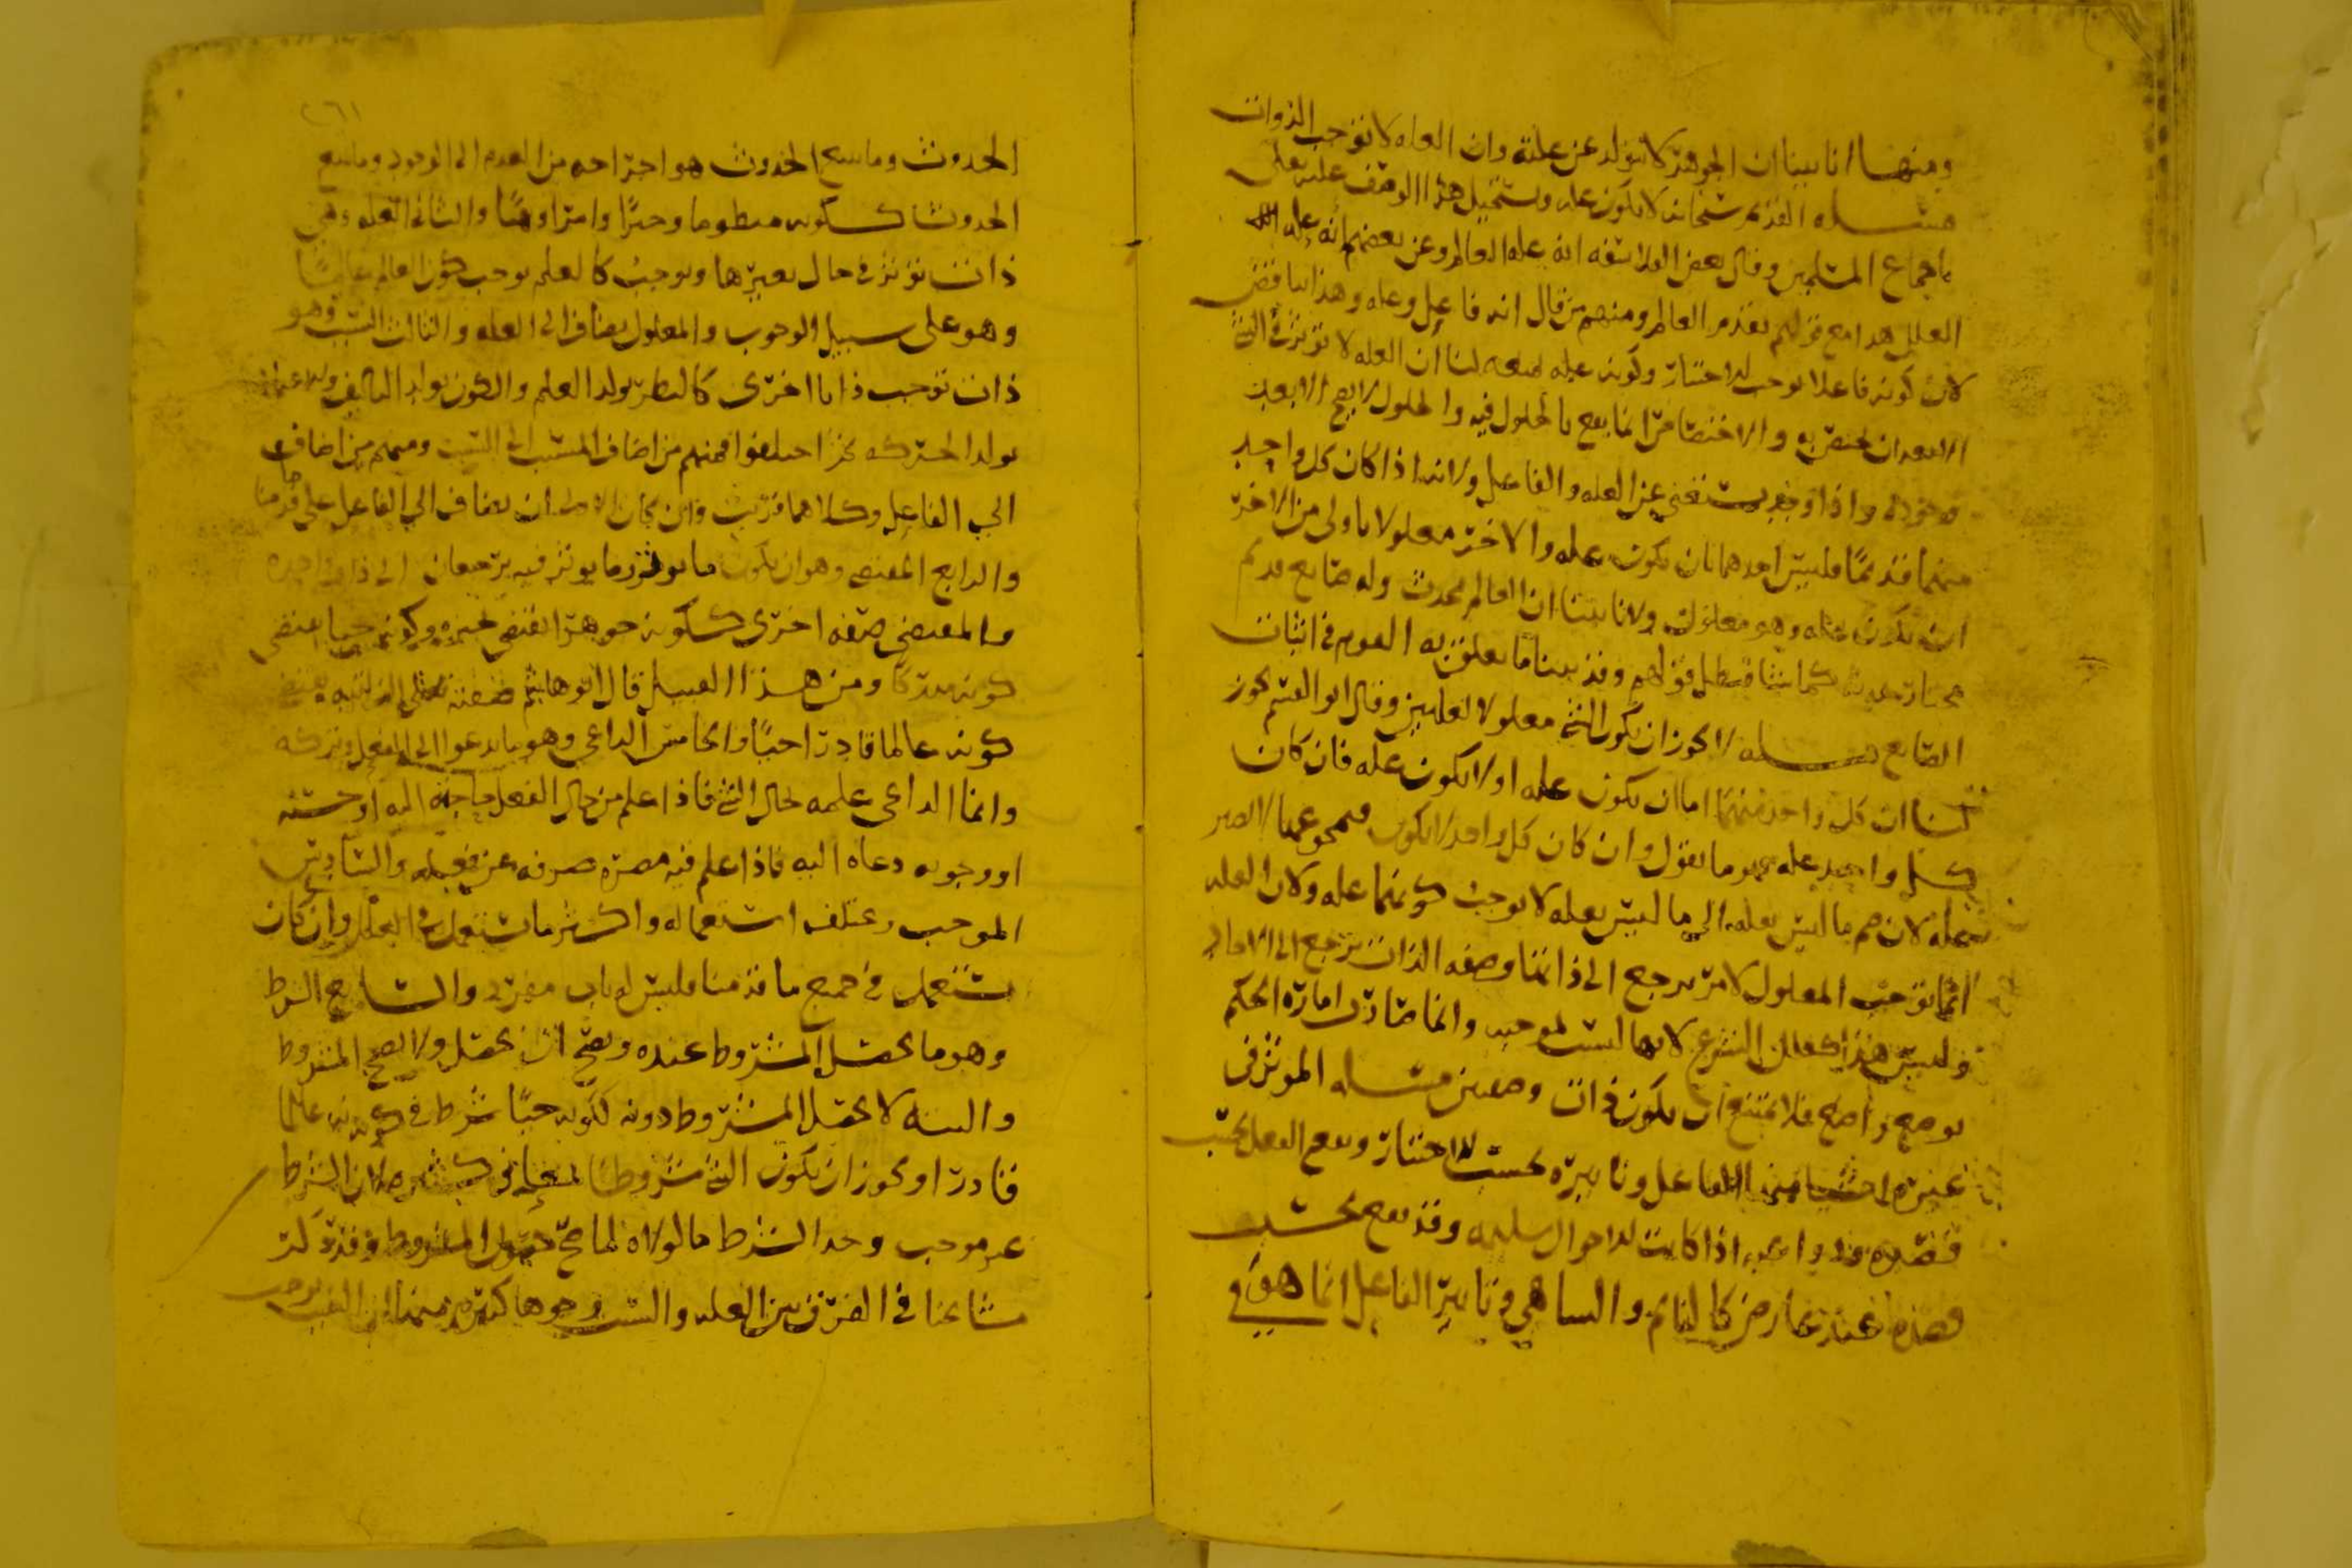 ومنها انا بينا ان الجوهر لا يتولد عن علة وان العله لا توجب الذوات
مسله القديم سبحانه لا يكون عله ويستحيل هذا الوصف عليه تعلى
باجماع المسلمين وقال بعض الفلاسفه انه عله العالم وعن بعضهم انه عله
العلل هذا مع قولهم بقدم العالم ومنهم من قال انه فاعل وعله وهذا يناقض
لان كونه فاعلا يوجب الاختيار وكونه عله يمنعه لنا ان العله لا تؤثر في الشي
الا بعد ان تختص به والاختصاص انما يقع بالحلول فيه والحلول لا يصح الا بعد
وجوده واذا وجد يستغني عن العله والفاعل ولانه اذا كان كل واحد
منهما قديما فليس احدهما بان يكون عله والاخر معلولا باولى من الاخر
ان يكون عله وهو معلول ولانا بينا ان العالم محدث وله صانع قديم
مختار فبطل قولهم وقد بينا ما يعلق به القوم في اثبات
الصانع مسله لا يجوز ان يكون الشي معلولا لعلتين وقال ابو القسم يجوز
لنا ان كل واحد منهما اما ان يكون عله او لا يكون عله فان كان
كل واحد عله فهو ما نقول وان كان كل واحد لا يكون فمجموعهما لا يصير
عله لان ضم ما ليس بعله الى ما ليس بعله لا يوجب كونهما عله ولان العله
انما توجب المعلول لامر يرجع الى ذاتها وصفه الذات ترجع الى الاحاد
وليس هذا كعلل الشرع لانها ليست بموجبه وانما صارت امارة الحكم
بوضع واضع فلا يمتنع ان يكون ذات وصفين مسله المؤثر في
غيره اشيا منها الفاعل وتاثيره بحسب الاختيار ويقع الفعل بحسب
قصده ودواعيه اذا كانت الاحوال سليمه وقد يقع بحسب
قصده عند عارض كالنائم والساهي وتاثير الفاعل انما هو في
الحدوث وما يتبع الحدوث هو اخراجه من العدم الى الوجود وما يتبع
الحدوث ككونه منظوما وخبرا وامرا ونهيا والثاني العله وهي
ذات تؤثر في حال لغيرها وتوجبه كالعلم يوجب كون العالم عالما
وهو على سبيل الوجوب والمعلول يضاف الى العله والثالث السبب وهو
ذات توجب ذاتا اخرى كالنظر يولد العلم والكون يولد التاليف والاعتماد
يولد الحركه ثم اختلفوا فمنهم من اضاف المسبب الى السبب ومنهم من اضافه
الى الفاعل وكلاهما قريب وان كان ان يضاف الى الفاعل على ما قدمنا
والرابع المقتضي وهو ان يكون ما يؤثر وما يؤثر فيه يرجعان الى ذات واحده
والمقتضى صفه اخرى ككونه جوهرا اقتضى تحيزه وكونه حيا اقتضى
كونه مدركا ومن هذا القبيل قال ابو هاشم صفته تعلى الذاتيه تقتضي
كونه عالما قادرا حيا والخامس الداعي وهو ما يدعو الى الفعل وتركه
وانما الداعي علمه بحال الشي فاذا علم من حال الفعل حاجته اليه او حسنه
او وجوبه دعاه اليه فاذا علم فيه مضره صرفه عن فعله والسادس
الموجب ويختلف استعماله واكثر ما يستعمل في العلل وان كان
يستعمل في جميع ما قدمنا فليس له باب مفرد والسابع الشرط
وهو ما يحصل المشروط عنده ويصح ان يحصل ولا يصح المشروط
والبته لا يحصل المشروط دونه ككونه حيا شرط في كونه عالما
قادرا ويجوز ان يكون الشي شروطا لان الشرط
غير موجب وحد الشرط ما لولاه لما صح حصول المشروط وقد ذكر
مشايخنا في الفرق بين العله والسبب وجوها كثيره منها ان السبب يوجب